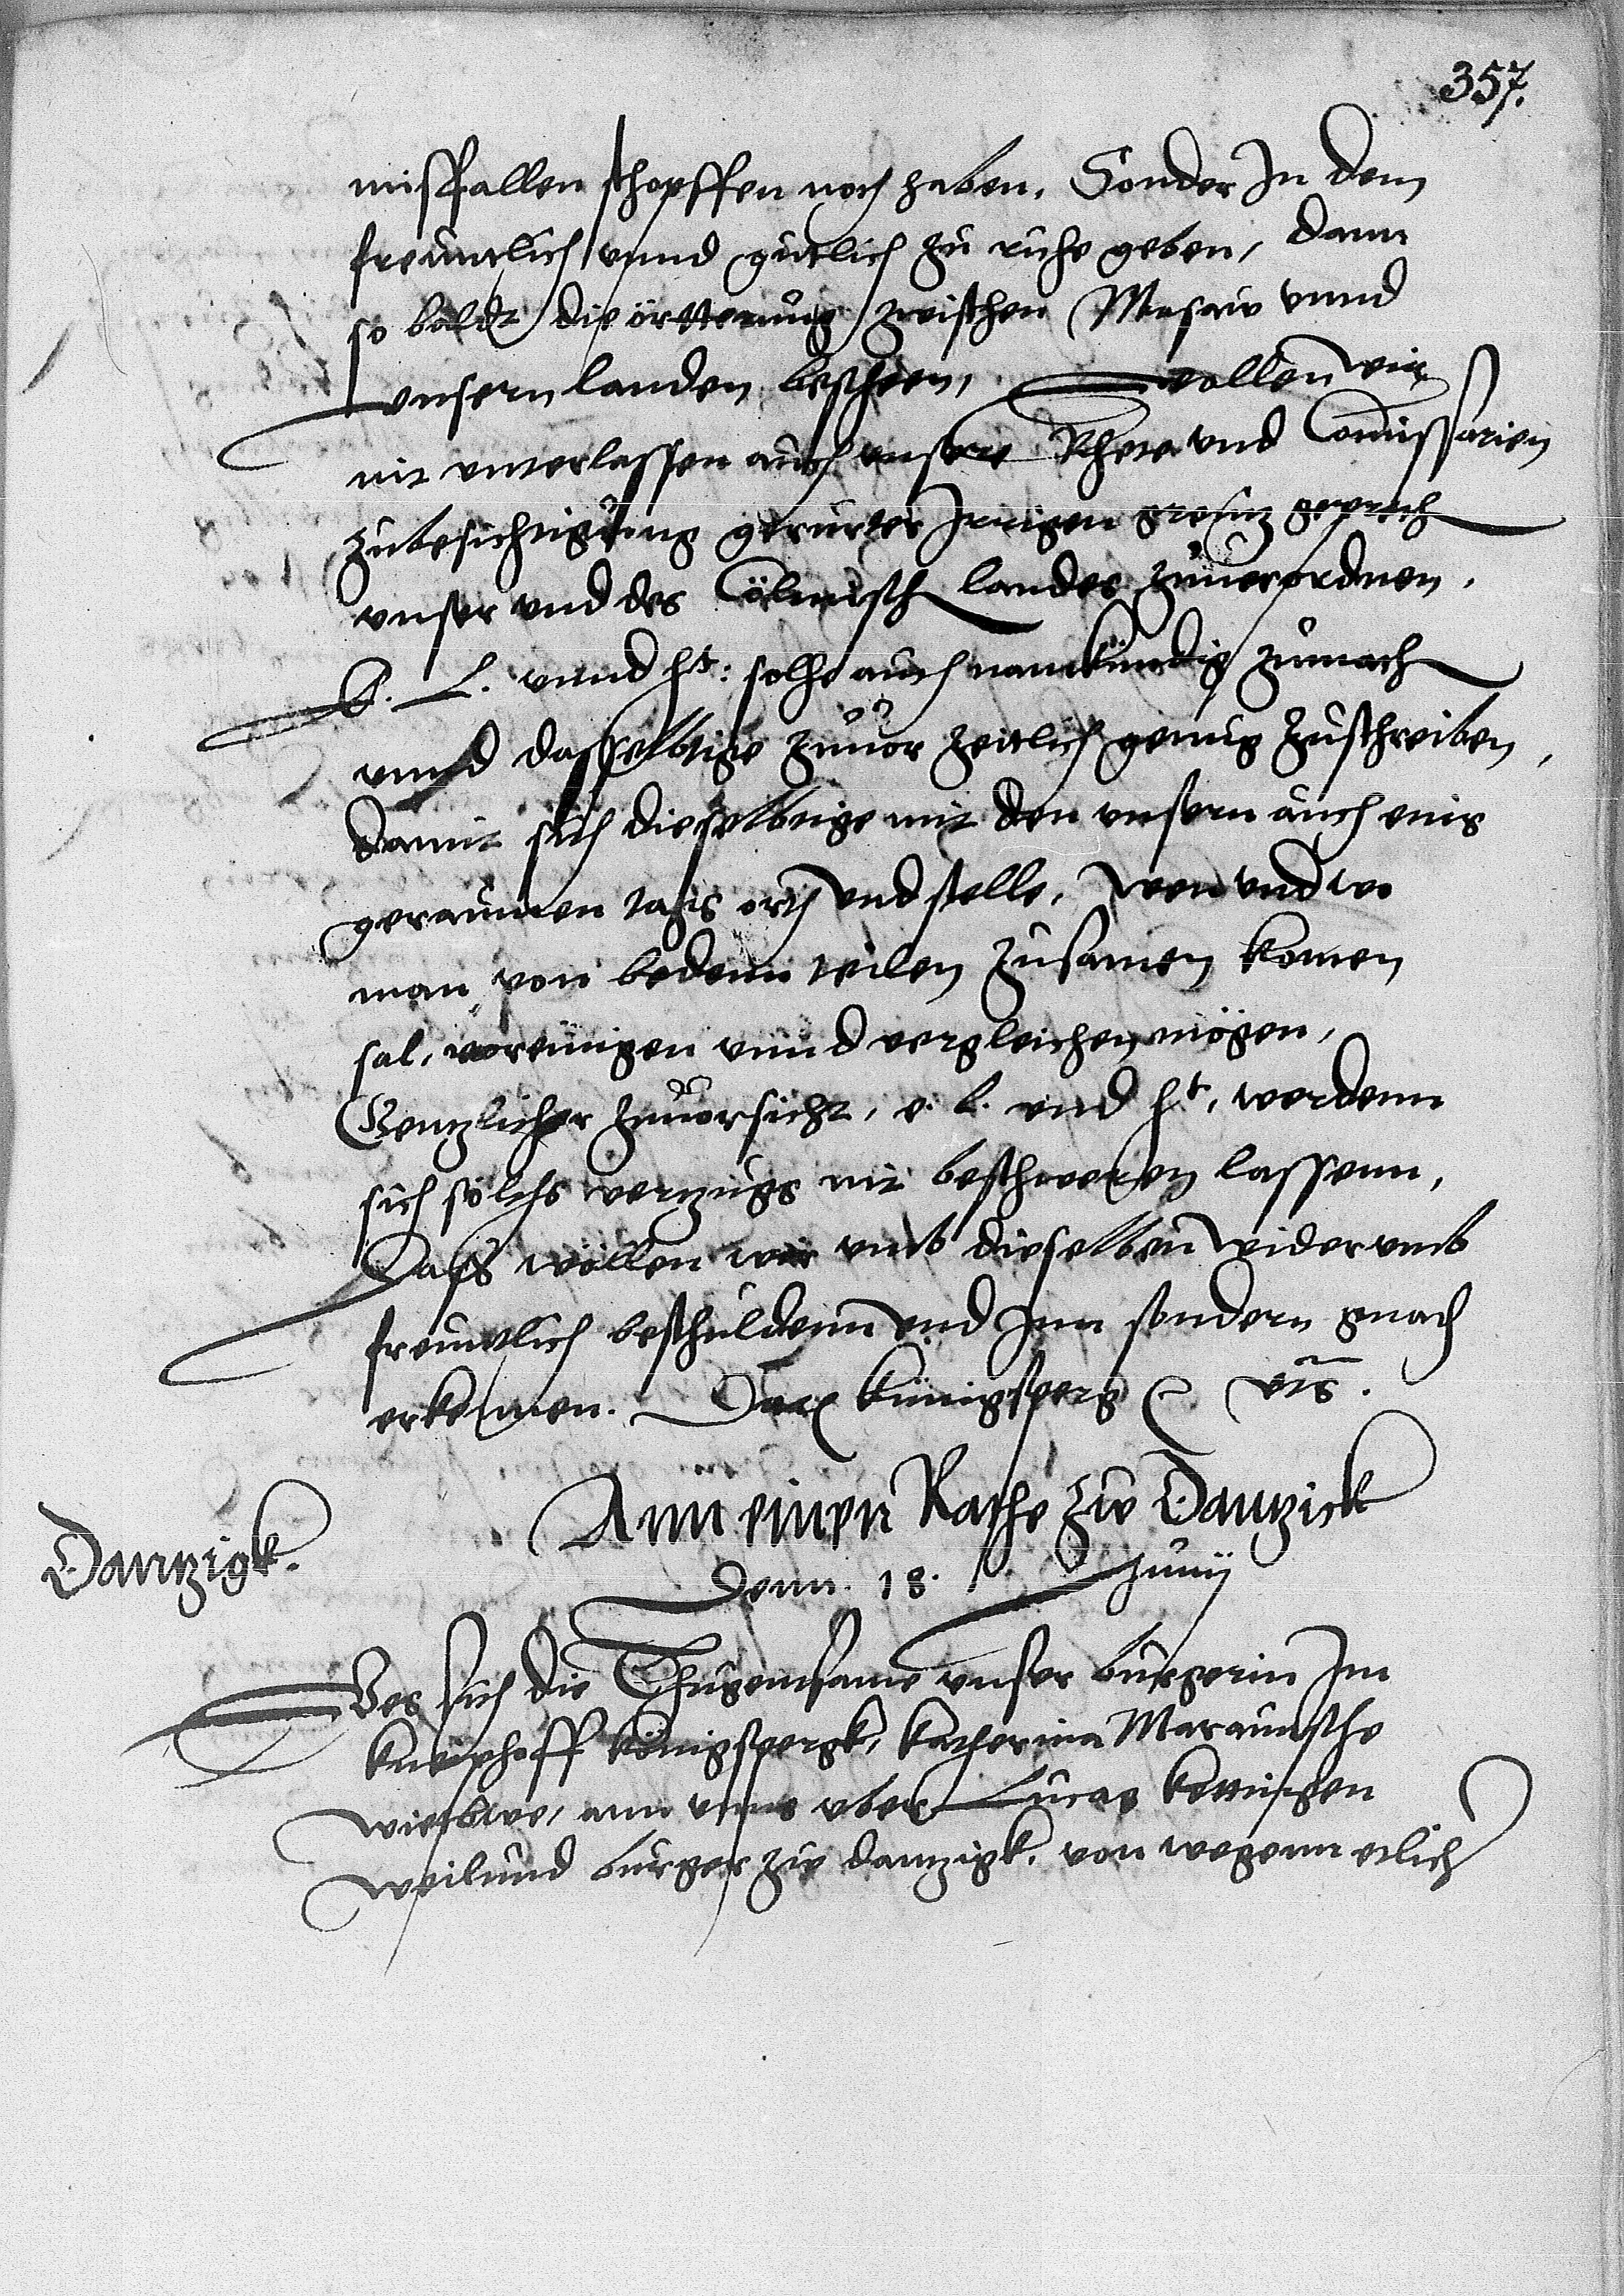 357.
misfallen schopffen noch haben. Sonder In dem
freuntlich vnnd gutlich zu ruhe geben, dann
so baldt die örtterung zwischen Masaw vnnd
vnsern landen bescheen, wollen wir
nit vnterlassen auch vnsere Rhete vnd Comissarien
zubesichtigung gerurter Irrigen grenz geprech
vnser vnd des Cölmisch landes zuuerordnen.
E. L. vnnd ht: solhs auch namkundig zumach
vnnd dasselbige zuuor zeitlich genug zuschreiben,
damit sich dieselbige mit den vnsern auch eins
geraumen tags orth vnd stelle, wen vnd wo
man von bedenn teilen zusamen komen
sal, voreinigen vnnd vergleichen mögen,
Gentzlicher zuuorsicht, e. l. vnd ht, werdenn
sich solchs verzugs nit beschweren lassenn,
Das wöllen wir vmb dieselben widerumb
freuntlich beschuldenn vnd Inn sondern gnad
erkennen. Dat Künigsperg vts.
Ann einen Rathe zw Dantzick
Dantzigk.
Denn 18. Junij
Es hat sich die Thugentsame vnser burgerin Im
kneiphoff Königspergk, Katherina Maraunsche
wietbwe, ann vnns vber Lucas Kettingen
weilund burger zw dantzigk, von wegenn etlich